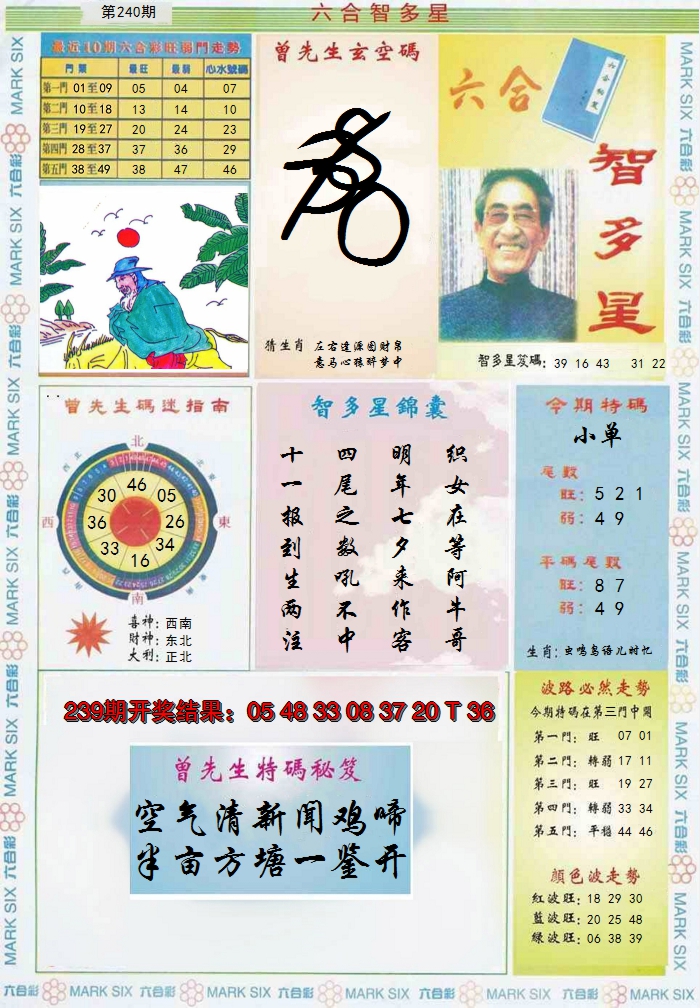 第240期
六合智多星
最近10期六合彩旺弱門走勢
門類 最旺 最弱 心水號碼
第一門 01至09 05 04 07
第二門 10至18 13 14 10
第三門 19至27 20 24 23
第四門 28至37 37 36 29
第五門 38至49 38 47 46
曾先生玄空碼
猜生肖 左右逢源图财帛
意马心猿醉梦中
六合
六合秘笈
智多星
智多星笈碼: 39 16 43 31 22
曾先生碼迷指南
北
東
南
西
46
05
26
34
16
33
36
30
喜神: 西南
財神: 东北
大利: 正北
智多星錦囊
织女在等阿牛哥
明年七夕来作客
四尾之数吼不中
十一报到生两注
今期特碼
小单
尾數
旺: 5 2 1
弱: 4 9
平碼尾數
旺: 8 7
弱: 4 9
生肖: 虫鸣鸟语儿时忆
239期开奖结果: 05 48 33 08 37 20 T 36
曾先生特碼秘笈
空气清新闻鸡啼
半亩方塘一鉴开
波路必然走勢
今期特碼在第三門中開
第一門: 旺 07 01
第二門: 轉弱 17 11
第三門: 旺 19 27
第四門: 轉弱 33 34
第五門: 平穩 44 46
顔色波走勢
紅波旺: 18 29 30
藍波旺: 20 25 48
緑波旺: 06 38 39
六合彩 MARK SIX 六合彩 MARK SIX 六合彩 MARK SIX 六合彩 MARK SIX 六合彩 MARK SIX